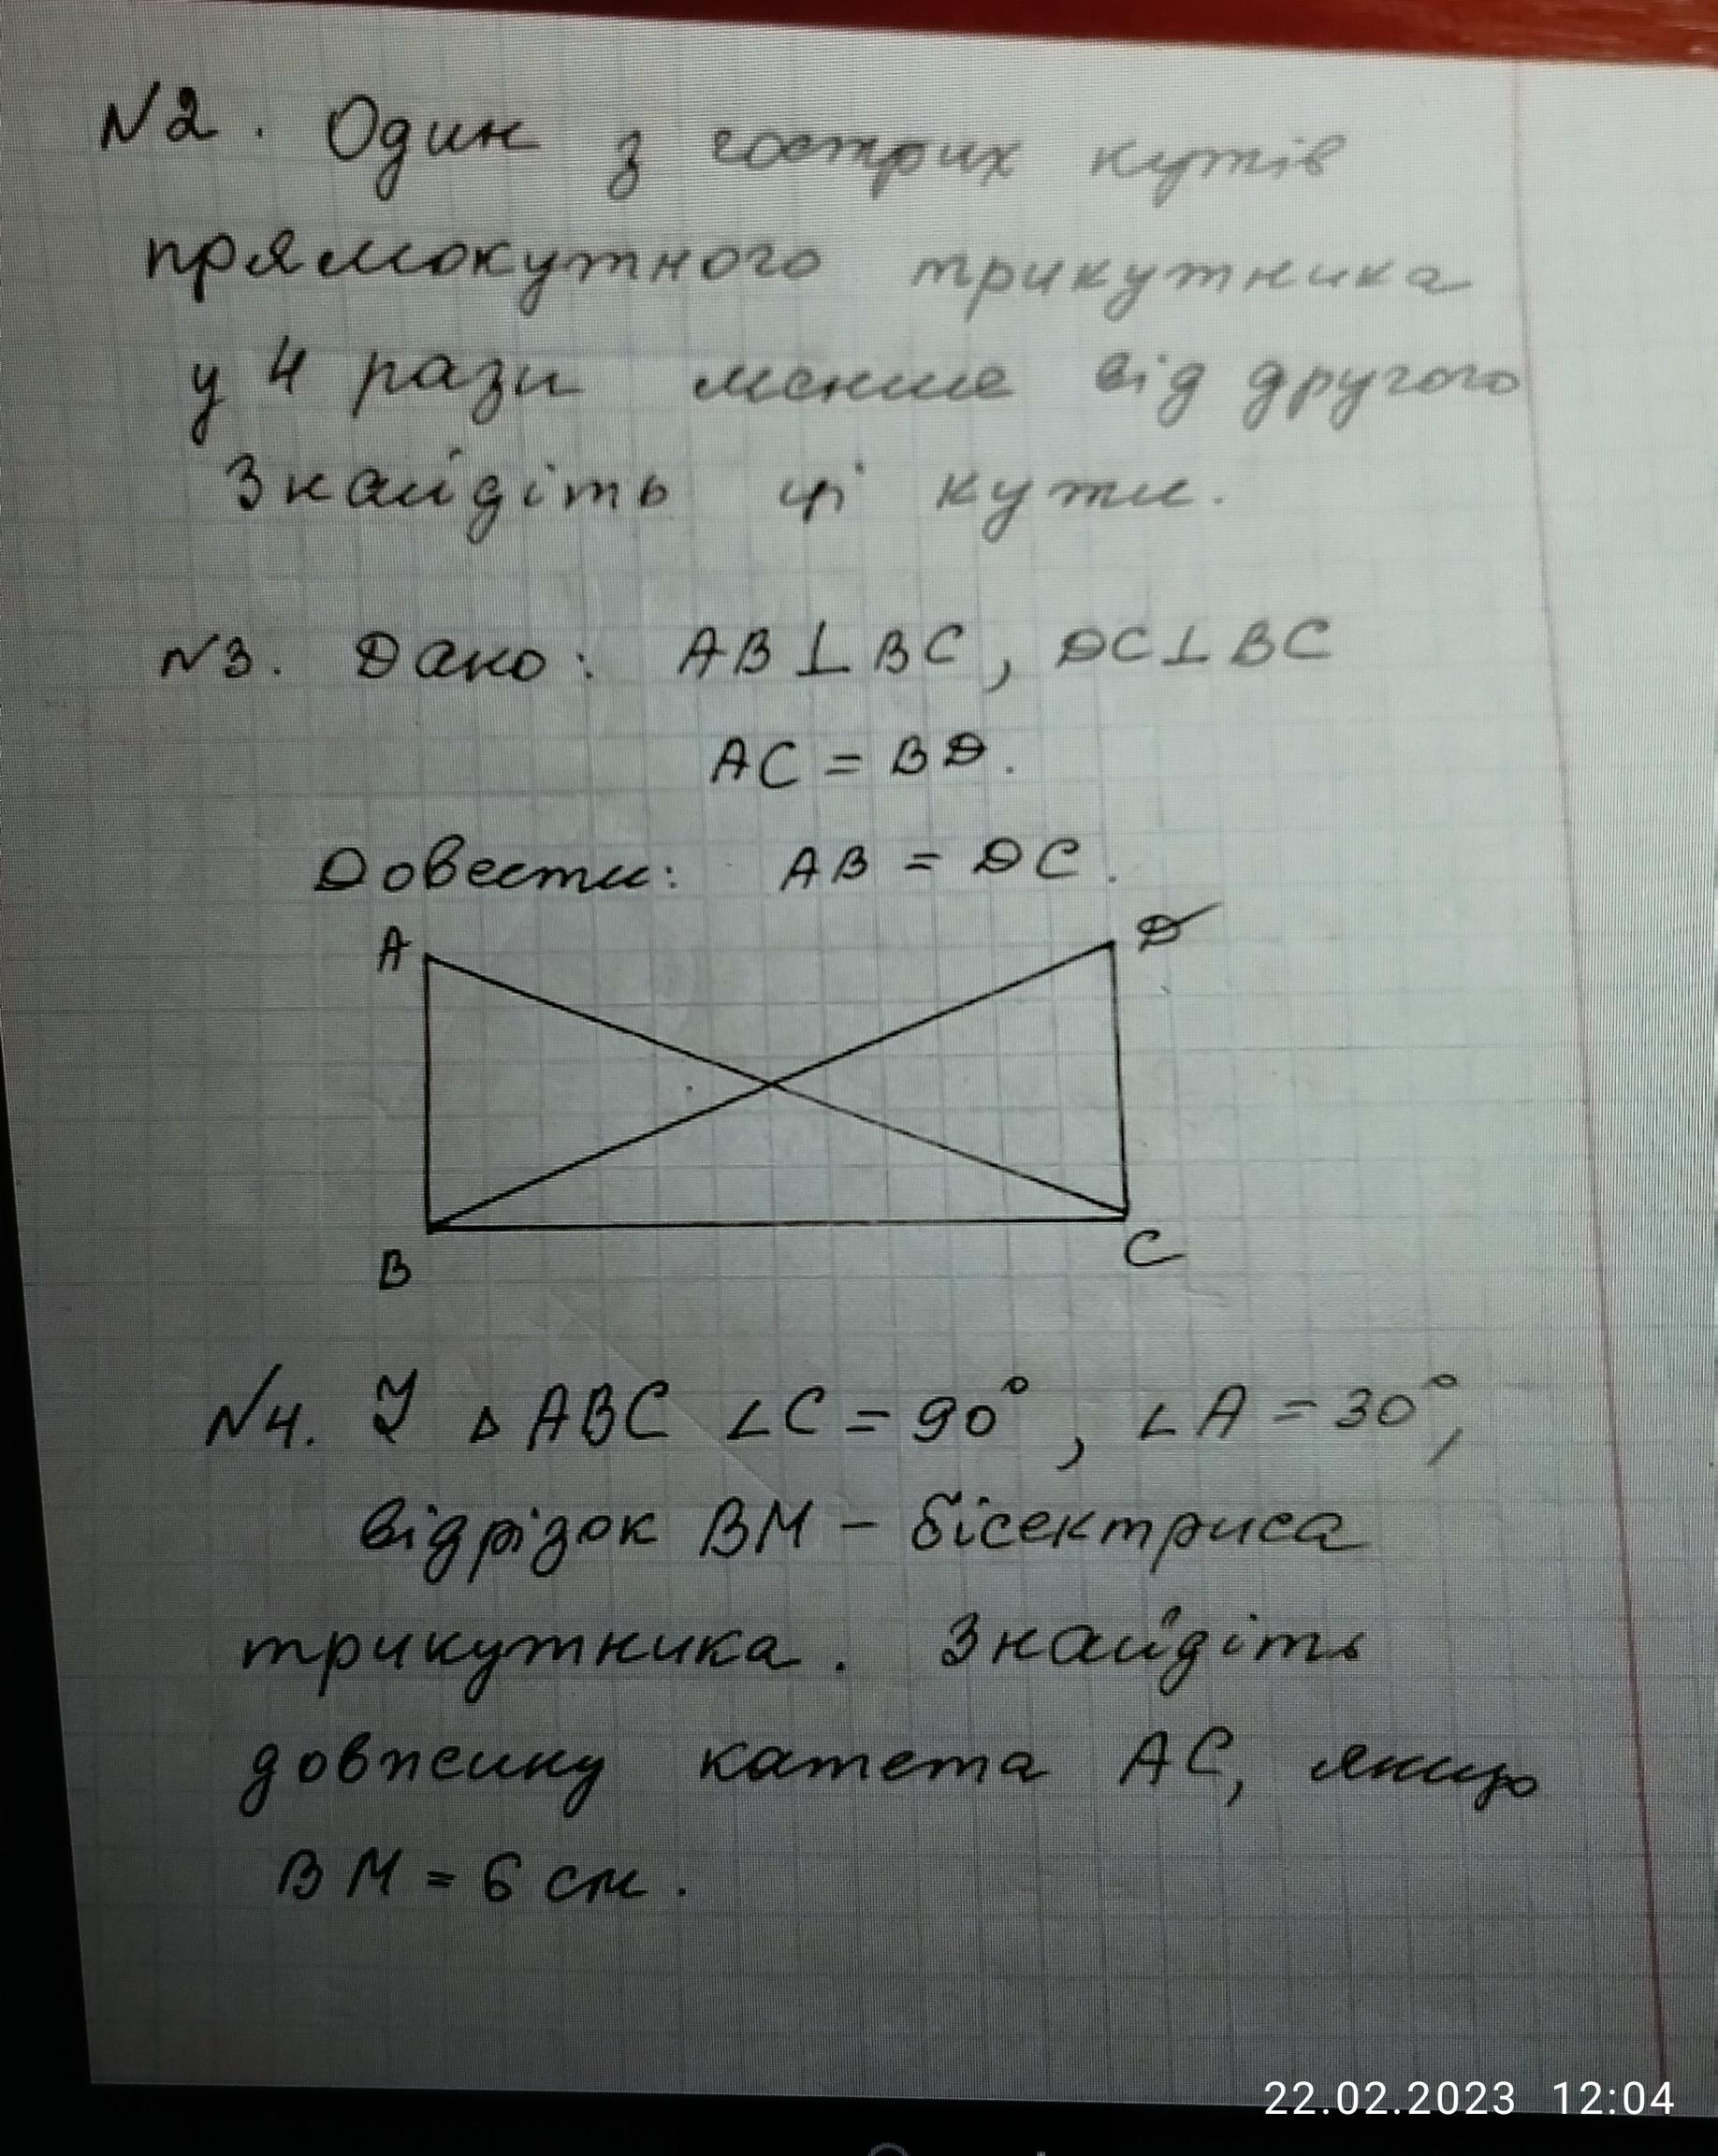 N2. Один з гострих кутів
прямокутного трикутника
у 4 рази менше від другого
Знайдіть ці кути.
N3. Дано: AB⊥BC, DC⊥BC
AC = BD.
Довести: AB = DC.
A D
B C
N4. У △ABC ∠C = 90°, ∠A = 30°,
відрізок BM - бісектриса
трикутника. Знайдіть
довжину катета AC, якщо
BM = 6 см.
22.02.2023 12:04